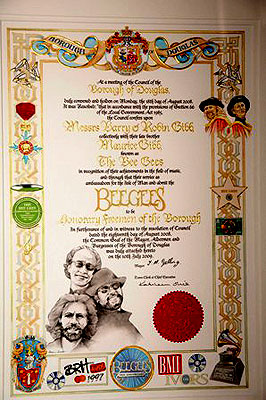 BOROUGH OF DOUGLAS
At a meeting of the Council of the
Borough of Douglas,
duly convened and holden on Monday, the 18th day of August, 2008,
It was Resolved: That in accordance with the provisions of Section
of the Local Government Act 1985,
the Council confers upon
Messrs Barry & Robin Gibb,
collectively with their late brother
Maurice Gibb,
known as
The Bee Gees
in recognition of their achievements in the field of music,
and through that their service as
ambassadors for the Isle of Man and abroad the
BEE GEES
to be
Honorary Freemen of the Borough
In pursuance of and in witness to the resolution of Council
dated the eighteenth day of August 2008,
the Common Seal of the Mayor, Aldermen and
Burgesses of the Borough of Douglas
was duly attached hereto
on the 10th July 2009.
Mayor
Town Clerk & Chief Executive
BRIT
1997
BEE GEES
BMI
IVORS